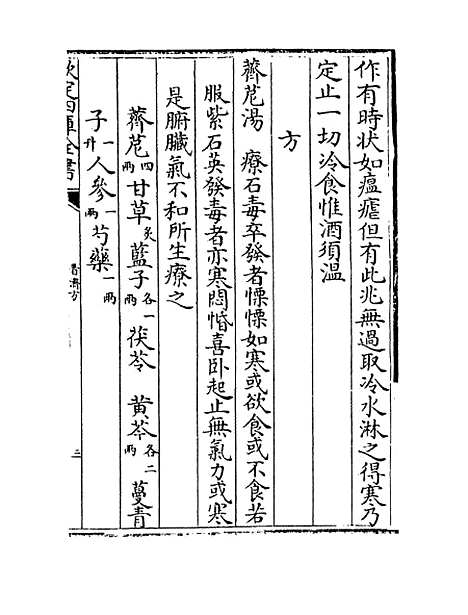 作有時状如瘟瘧但有此兆無過取冷水淋之得寒乃
定止一切冷食惟酒須溫
方
薺苨湯 療石毒卒發者慄慄如寒或欲食或不食若
服紫石英發毒者亦寒悶惛喜卧起止無氣力或寒
是腑臓氣不和所生療之
薺苨四兩甘草炙藍子各一兩茯苓 黄芩各二兩 蔓青
子一升人參一兩芍藥一兩
欽定四庫全書
普濟方
二